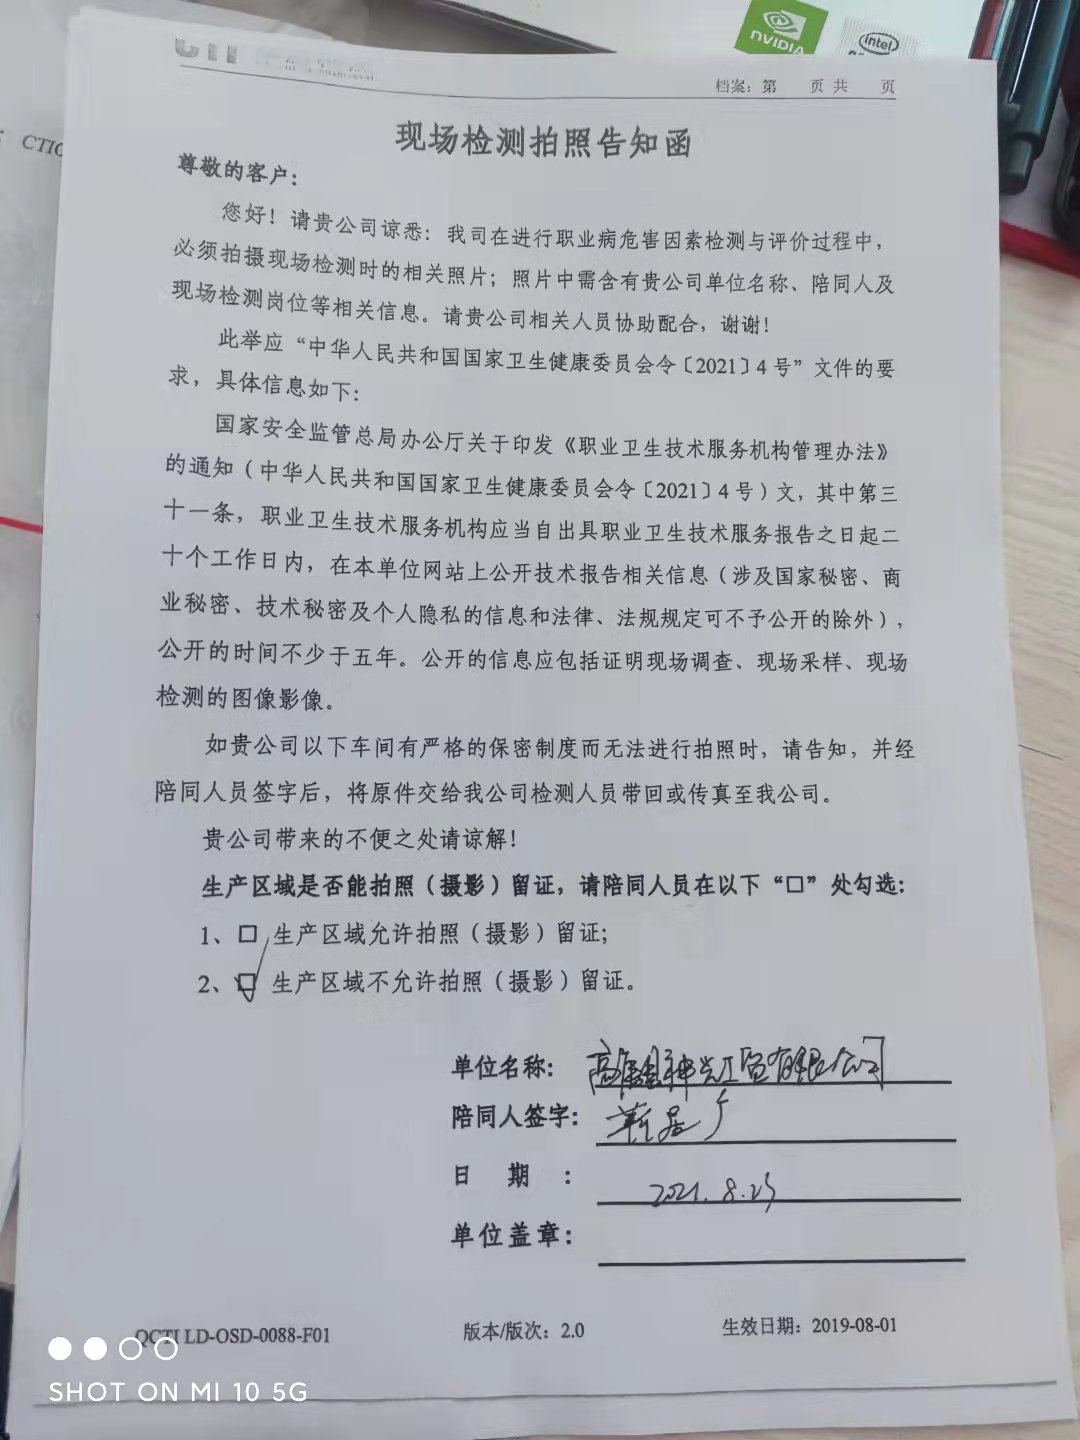 NVIDIA
intel
CTI
CTI
档案：第 页 共 页
现场检测拍照告知函
尊敬的客户：
您好！请贵公司谅悉：我司在进行职业病危害因素检测与评价过程中，
必须拍摄现场检测时的相关照片；照片中需含有贵公司单位名称、陪同人及
现场检测岗位等相关信息。请贵公司相关人员协助配合，谢谢！
此举应“中华人民共和国国家卫生健康委员会令〔2021〕4 号”文件的要
求，具体信息如下：
国家安全监管总局办公厅关于印发《职业卫生技术服务机构管理办法》
的通知（中华人民共和国国家卫生健康委员会令〔2021〕4 号）文，其中第三
十一条，职业卫生技术服务机构应当自出具职业卫生技术服务报告之日起二
十个工作日内，在本单位网站上公开技术报告相关信息（涉及国家秘密、商
业秘密、技术秘密及个人隐私的信息和法律、法规规定可不予公开的除外），
公开的时间不少于五年。公开的信息应包括证明现场调查、现场采样、现场
检测的图像影像。
如贵公司以下车间有严格的保密制度而无法进行拍照时，请告知，并经
陪同人员签字后，将原件交给我公司检测人员带回或传真至我公司。
贵公司带来的不便之处请谅解！
生产区域是否能拍照（摄影）留证，请陪同人员在以下“□”处勾选：
1、□ 生产区域允许拍照（摄影）留证；
2、☑ 生产区域不允许拍照（摄影）留证。
单位名称： 工贸有限公司
陪同人签字：
日 期 ： 2021.8.23
单位盖章：
QCTI LD-OSD-0088-F01 版本/版次：2.0 生效日期：2019-08-01
SHOT ON MI 10 5G